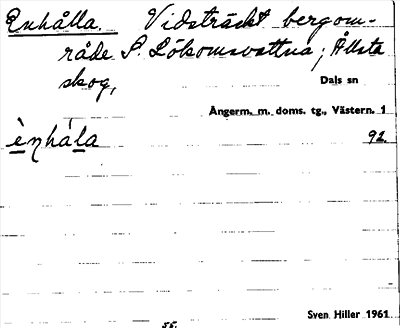 Enhålla. Vidsträckt bergom-
råde S. Lökomsvattna; Ållsta
skog,
Dals sn
Ångerm. m. doms. tg., Västern. 1
ènhála 92.
Sven Hiller 1961
55.